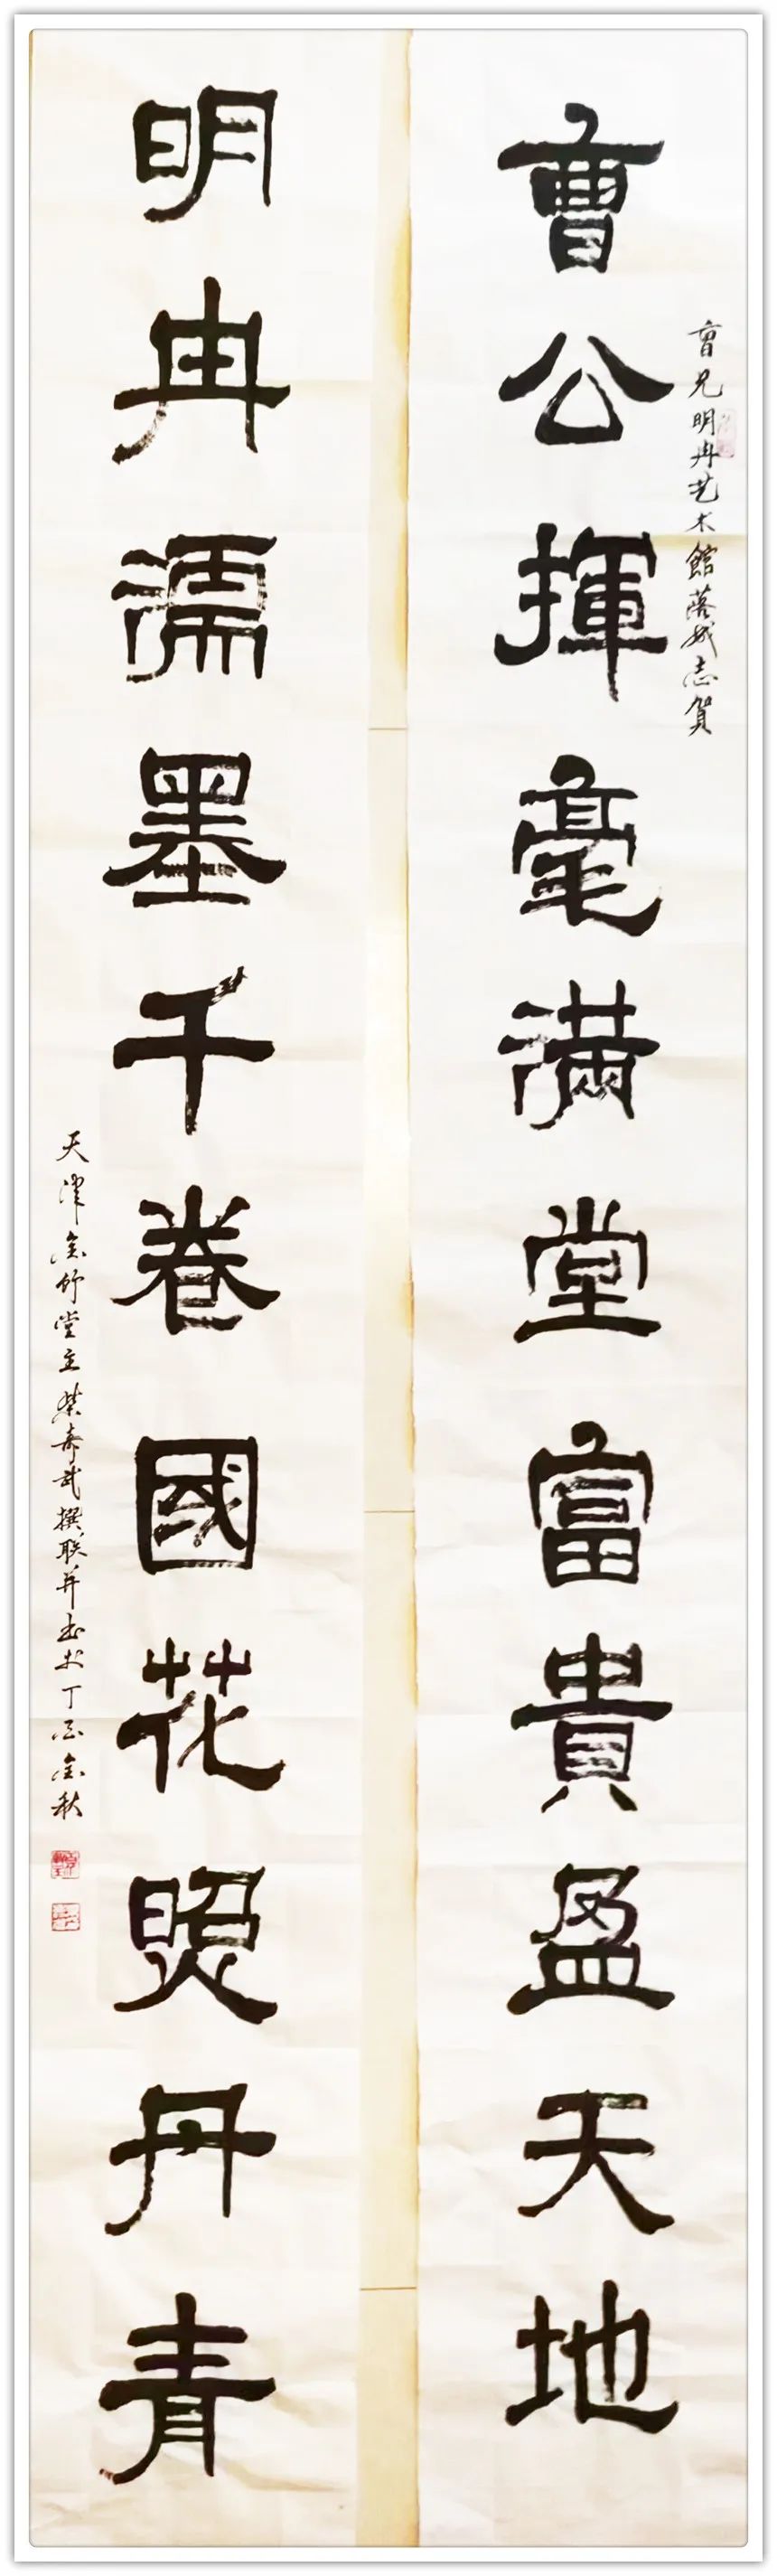 曹兄明冉艺术館落成志賀
曹公揮毫滿堂富貴盈天地
明冉濡墨千卷國花照丹青
天津金竹堂主撰联并书於丁酉金秋